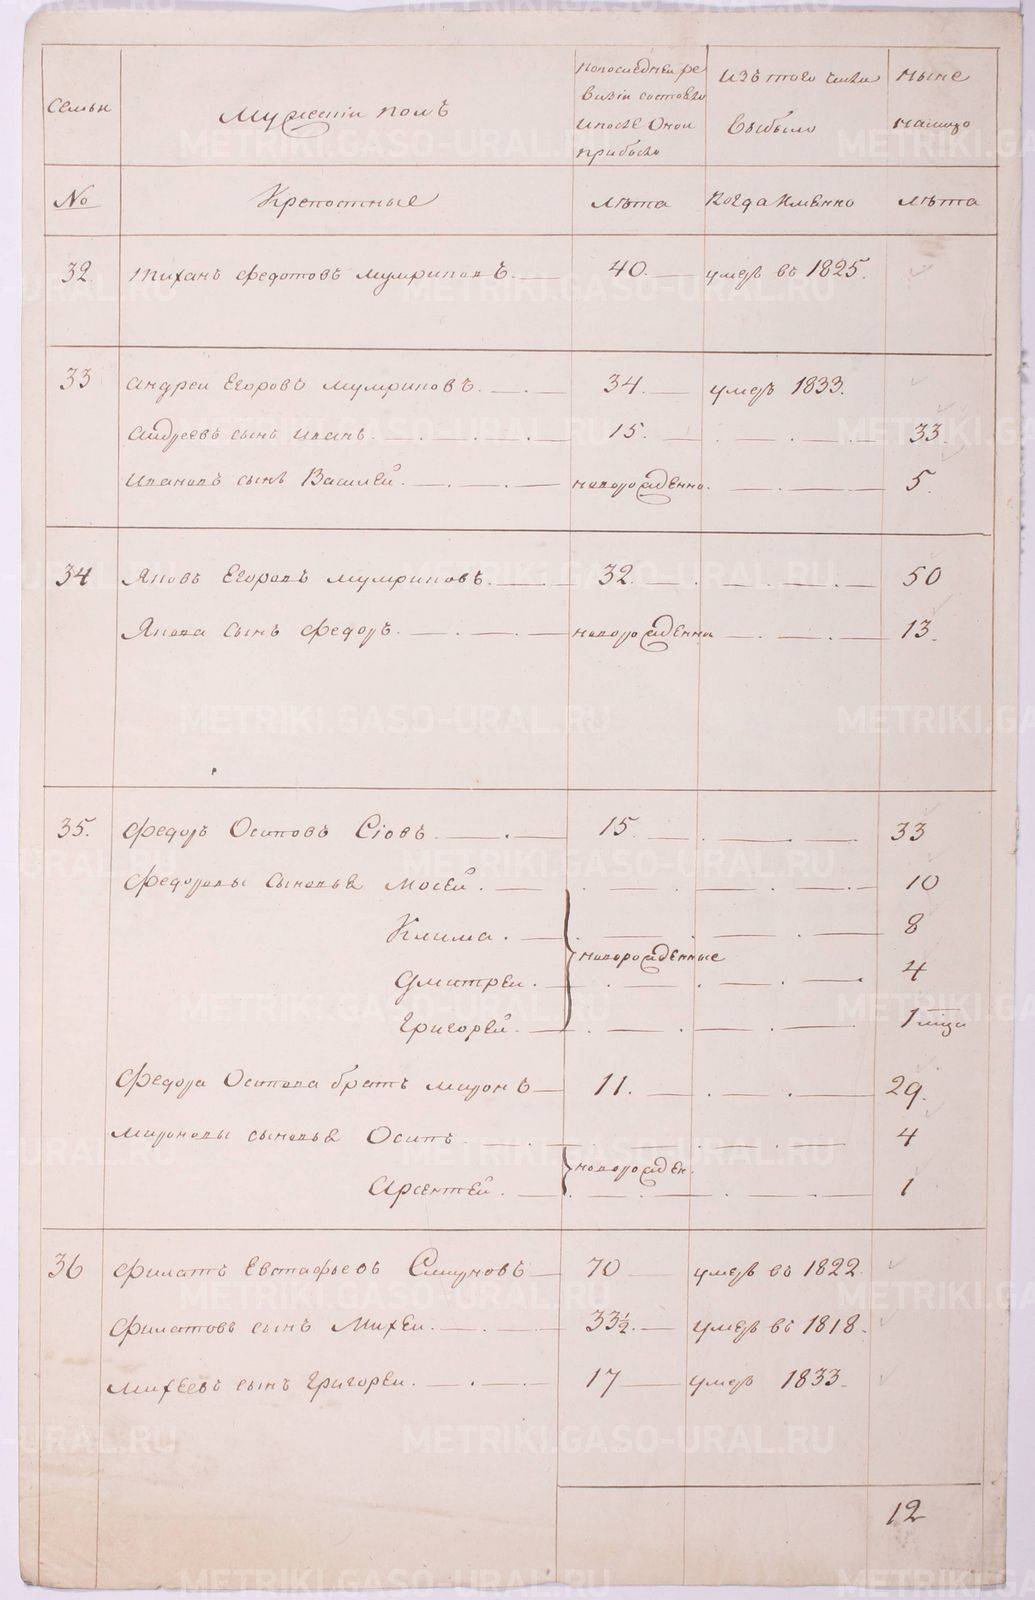 Семьи
Мужескiй полъ
По последней ре
визiи состояло
и после оной
прибыло
Изъ того числа
выбыло
Ныне
на лицо
No
Крепостные
лѣта
когда имянно
лѣта
32. Тиханъ Федотовъ Мумриновъ. 40. умеръ въ 1825.
33 Андреи Егоровъ Мумриновъ. 34. умеръ 1833.
Андреевъ сынъ Иванъ. 15. 33.
Ивановъ сынъ Василей. новорожденно. 5.
34 Яковъ Егоровъ Мумриновъ. 32. 50
Якова сынъ Федоръ. новорожденна 13.
35. Федоръ Осиповъ Сiовъ. 15. 33
Федоровы сыновья Мосей. 10
Клима. 8
новорожденные
Дмитреи. 4
Григорей. 1 мца
Федора Осипова братъ Миронъ 11. 29.
Мироновы сыновья Осипъ. 4
новорожден.
Арсентей. 1
36 Филатъ Евстафьевъ 70 умеръ въ 1822
Филатовъ сынъ Михеи. 33½. умеръ въ 1818.
Михеевъ сынъ Григореи. 17 умеръ 1833.
12
METRIKI.GASO-URAL.RU